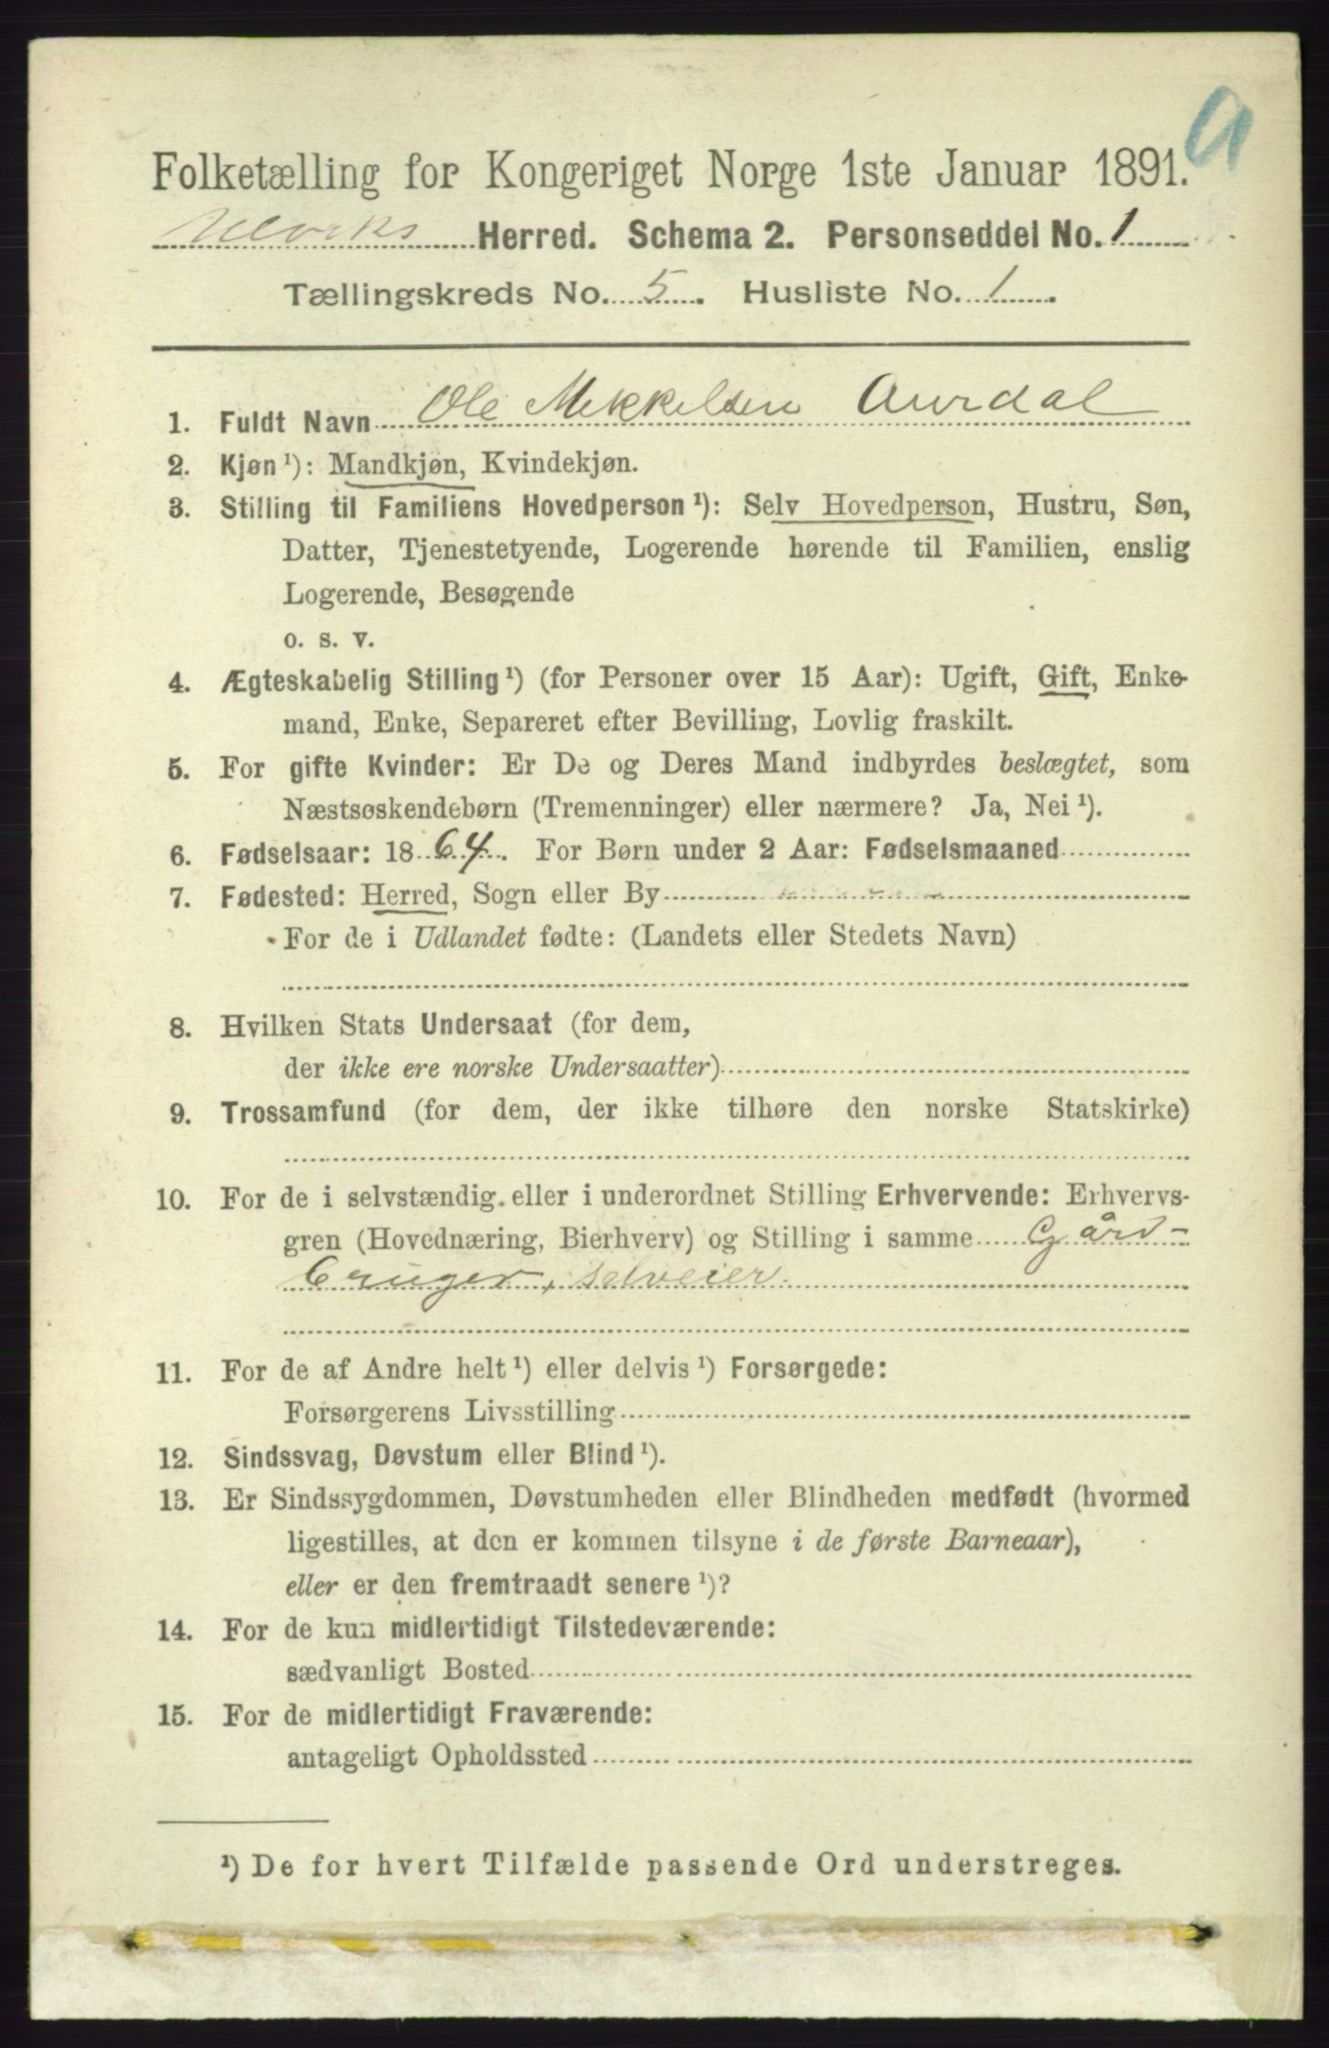 a
Folketælling for Kongeriget Norge 1ste Januar 1891.
Ulviks Herred. Schema 2. Personseddel No. 1
Tællingskreds No. 5. Husliste No. 1.
1. Fuldt Navn Ole Mekkelsen Aurdal
2. Kjøn¹): Mandkjøn, Kvindekjøn.
3. Stilling til Familiens Hovedperson¹): Selv Hovedperson, Hustru, Søn,
Datter, Tjenestetyende, Logerende hørende til Familien, enslig
Logerende, Besøgende
o. s. v.
4. Ægteskabelig Stilling¹) (for Personer over 15 Aar): Ugift, Gift, Enke-
mand, Enke, Separeret efter Bevilling, Lovlig fraskilt.
5. For gifte Kvinder: Er De og Deres Mand indbyrdes beslægtet, som
Næstsøskendebørn (Tremenninger) eller nærmere? Ja, Nei¹).
6. Fødselsaar: 1864. For Børn under 2 Aar: Fødselsmaaned
7. Fødested: Herred, Sogn eller By
For de i Udlandet fødte: (Landets eller Stedets Navn)
8. Hvilken Stats Undersaat (for dem,
der ikke ere norske Undersaatter)
9. Trossamfund (for dem, der ikke tilhøre den norske Statskirke)
10. For de i selvstændig eller i underordnet Stilling Erhvervende: Erhvervs-
gren (Hovednæring, Bierhverv) og Stilling i samme Gård-
bruger, selveier.
11. For de af Andre helt¹) eller delvis¹) Forsørgede:
Forsørgerens Livsstilling
12. Sindssvag, Døvstum eller Blind¹).
13. Er Sindssygdommen, Døvstumheden eller Blindheden medfødt (hvormed
ligestilles, at den er kommen tilsyne i de første Barneaar),
eller er den fremtraadt senere¹)?
14. For de kun midlertidigt Tilstedeværende:
sædvanligt Bosted
15. For de midlertidigt Fraværende:
antageligt Opholdssted
¹) De for hvert Tilfælde passende Ord understreges.